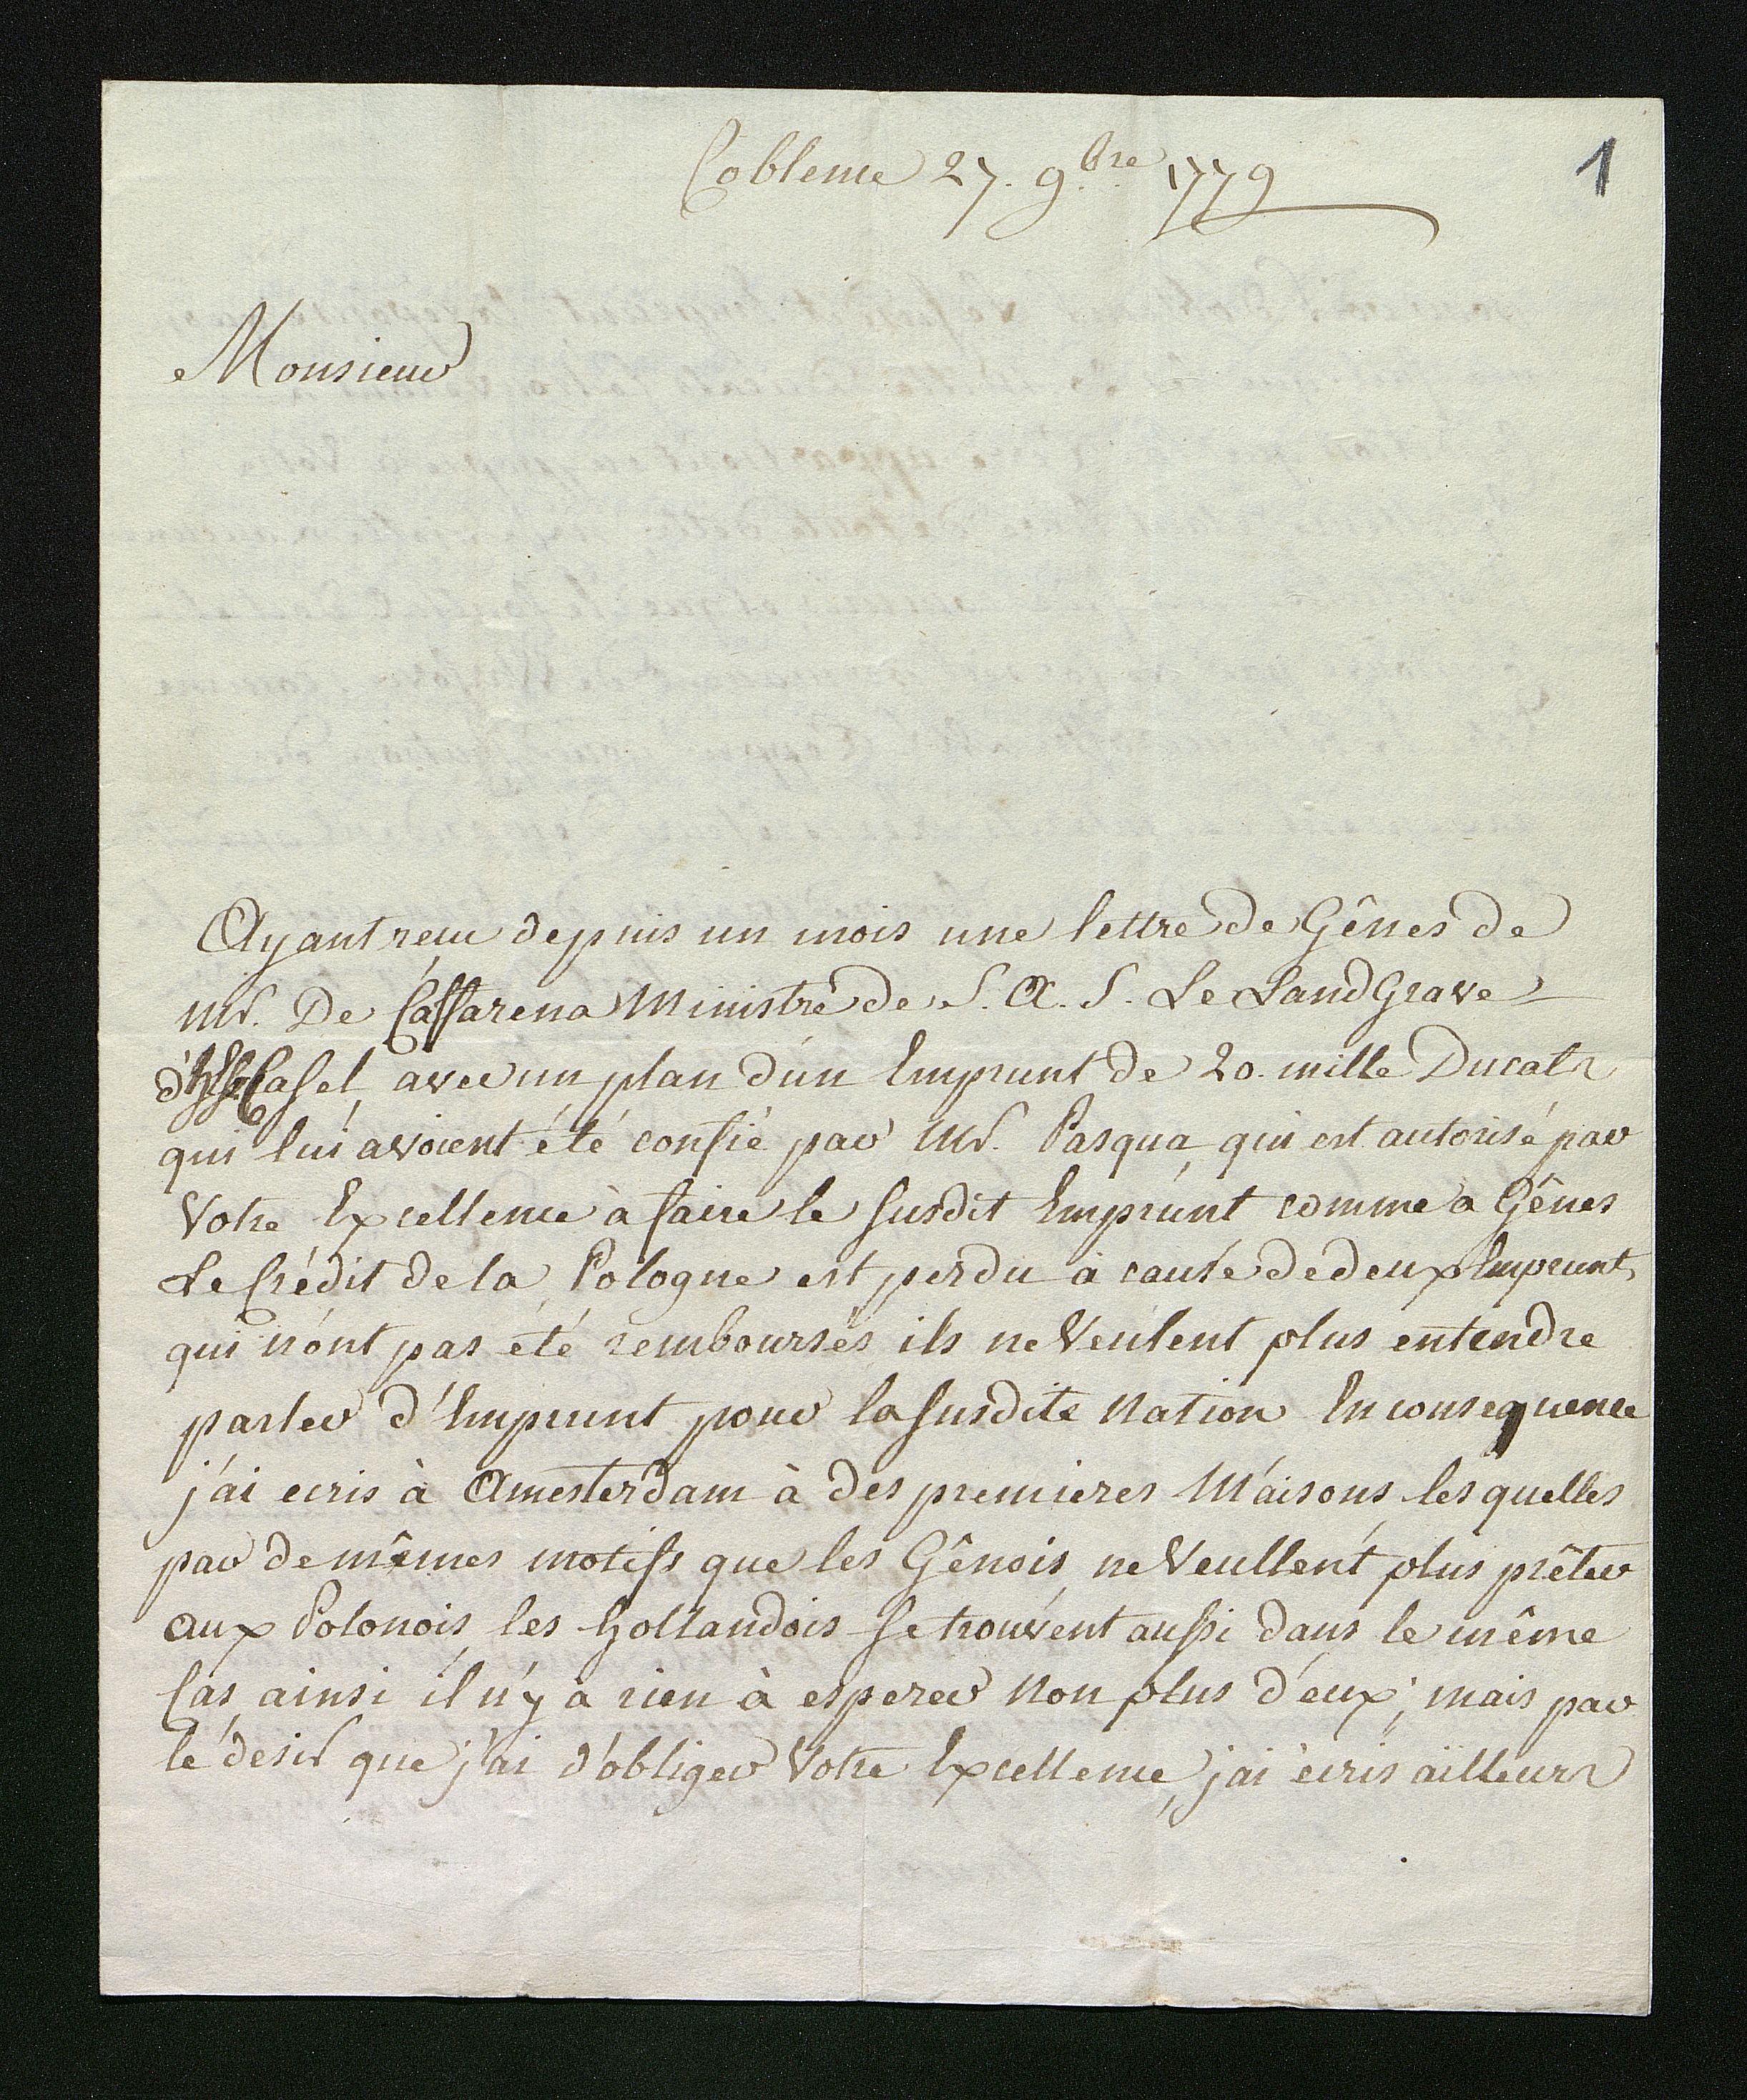 Coblence 27. 9.bre 1779
1
Monsieur
Ayant reçu depuis un mois une lettre de Gênes de
Mr. De Caffarena Ministre de S. A. S. Le LandGrave
d'H Cassel, avec un plan d'un Emprunt de 20. mille Ducats
qui lui avoient été confié par Mr. Pasqua, qui est autorisé par
Votre Excellence à faire le susdit Emprunt comme a Gênes
Le Crédit de la Pologne est perdu à cause de deux Emprunt
qui n'ont pas eté remboursés ils ne Veulent plus entendre
parler d'Emprunt pour la susdite Nation En consequence
j'ai ecris à Amesterdam à des premieres Maisons, les quelles
par de mêmes motifs que les Gênois, ne Veullent plus prêter
aux Polonois, les Hollandois se trouvent aussi dans le même
Cas, ainsi il n'y a rien à esperer non plus d'eux; mais par
le desir que j'ai d'obliger Votre Excellence, j'ai ecris ailleurs